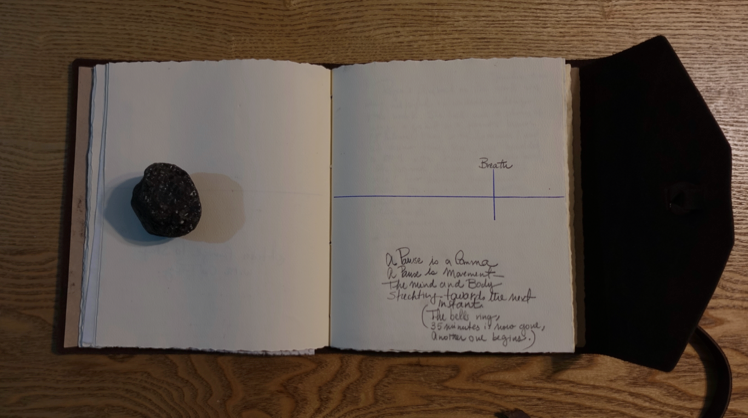 Breath
A Pause is a Comma
A Pause is Movement—
The mind and Body
Stretching towards the next
instant.
(The bells ring,
35 minutes is now gone,
another one begins.)